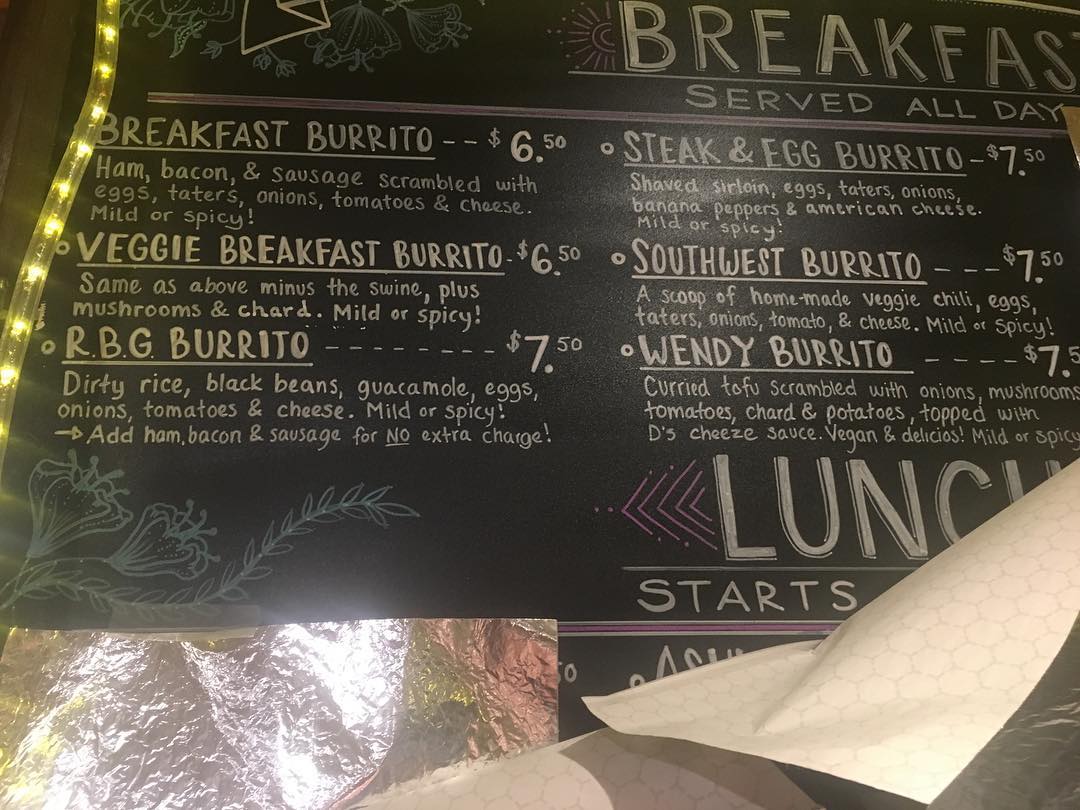 BREAKFAST
SERVED ALL DAY
BREAKFAST BURRITO -- $6.50
Ham, bacon, & sausage scrambled with
eggs, taters, onions, tomatoes & cheese.
Mild or spicy!
VEGGIE BREAKFAST BURRITO - $6.50
Same as above minus the swine, plus
mushrooms & chard. Mild or spicy!
R.B.G. BURRITO -------- $7.50
Dirty rice, black beans, guacamole, eggs,
onions, tomatoes & cheese. Mild or spicy!
→ Add ham, bacon & sausage for NO extra charge!
STEAK & EGG BURRITO - $7.50
Shaved sirloin, eggs, taters, onions,
banana peppers & american cheese.
Mild or spicy!
SOUTHWEST BURRITO --- $7.50
A scoop of home-made veggie chili, eggs,
taters, onions, tomato, & cheese. Mild or spicy!
WENDY BURRITO ---- $7.5
Curried tofu scrambled with onions, mushrooms
tomatoes, chard & potatoes, topped with
D's cheeze sauce. Vegan & delicios! Mild or spicy
LUNC
STARTS